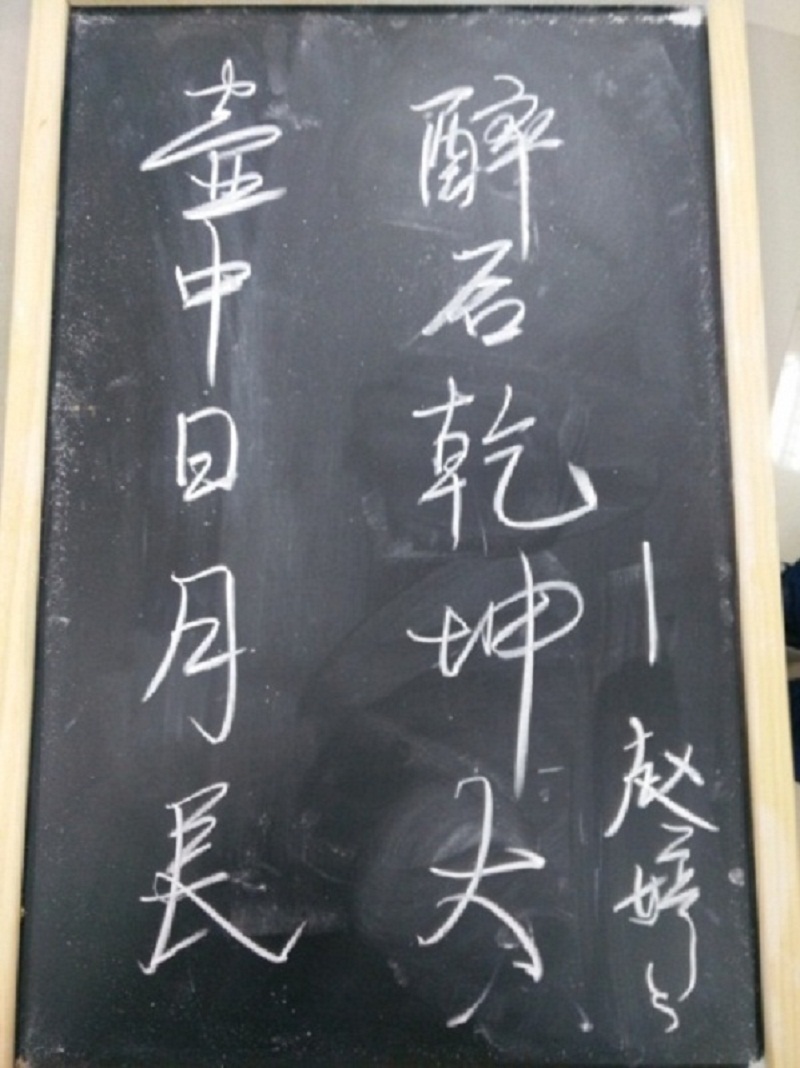 壶中日月長
醉后乾坤大
—赵婷婷